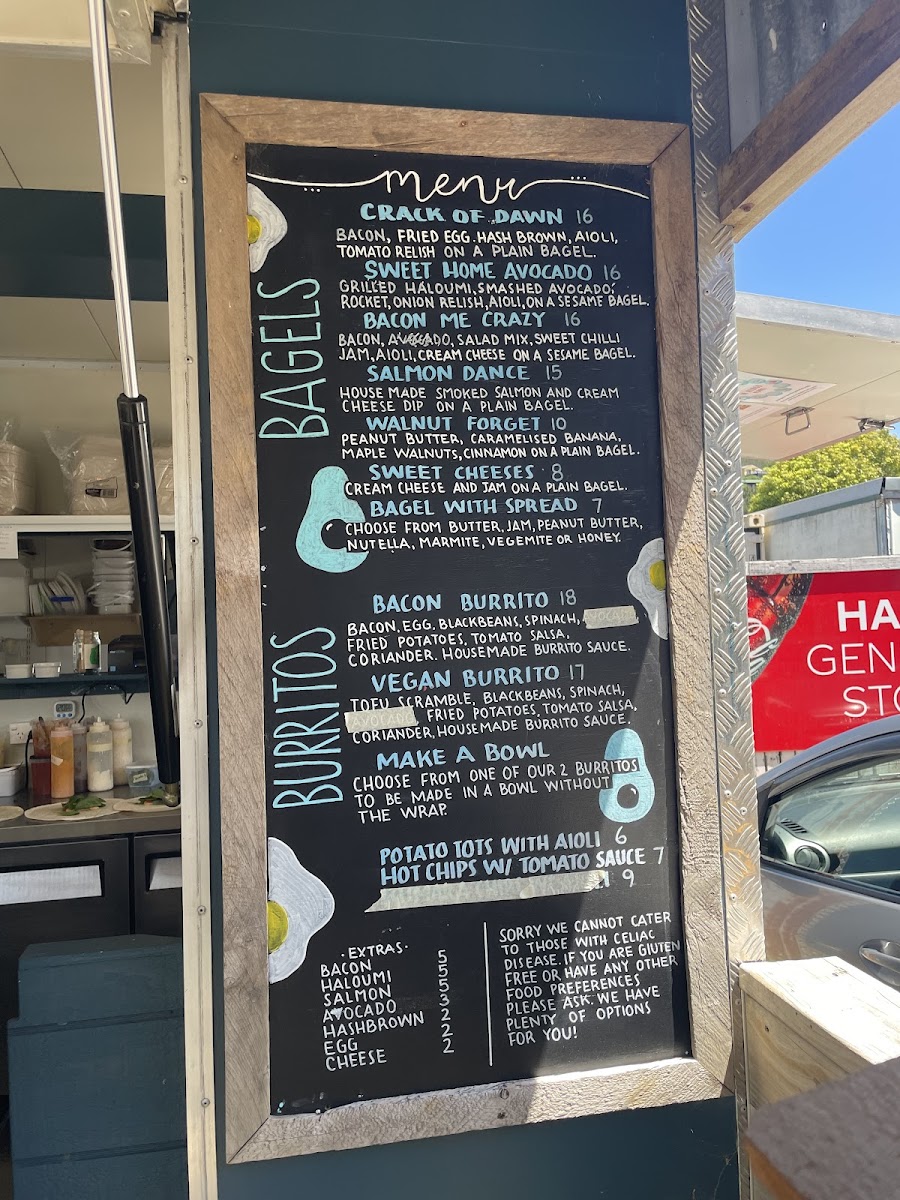 menu
BAGELS
CRACK OF DAWN 16
BACON, FRIED EGG. HASH BROWN, AIOLI,
TOMATO RELISH ON A PLAIN BAGEL.
SWEET HOME AVOCADO 16
GRILLED HALOUMI, SMASHED AVOCADO,
ROCKET, ONION RELISH, AIOLI, ON A SESAME BAGEL.
BACON ME CRAZY 16
BACON, AVOCADO, SALAD MIX, SWEET CHILLI
JAM, AIOLI, CREAM CHEESE ON A SESAME BAGEL.
SALMON DANCE 15
HOUSE MADE SMOKED SALMON AND CREAM
CHEESE DIP ON A PLAIN BAGEL.
WALNUT FORGET 10
PEANUT BUTTER, CARAMELISED BANANA,
MAPLE WALNUTS, CINNAMON ON A PLAIN BAGEL.
SWEET CHEESES 8
CREAM CHEESE AND JAM ON A PLAIN BAGEL.
BAGEL WITH SPREAD 7
CHOOSE FROM BUTTER, JAM, PEANUT BUTTER,
NUTELLA, MARMITE, VEGEMITE OR HONEY.
BURRITOS
BACON BURRITO 18
BACON, EGG, BLACKBEANS, SPINACH, AVOCADO,
FRIED POTATOES, TOMATO SALSA,
CORIANDER. HOUSEMADE BURRITO SAUCE.
VEGAN BURRITO 17
TOFU SCRAMBLE, BLACKBEANS, SPINACH,
AVOCADO, FRIED POTATOES, TOMATO SALSA,
CORIANDER, HOUSEMADE BURRITO SAUCE.
MAKE A BOWL
CHOOSE FROM ONE OF OUR 2 BURRITOS
TO BE MADE IN A BOWL WITHOUT
THE WRAP.
POTATO TOTS WITH AIOLI 6
HOT CHIPS W/ TOMATO SAUCE 7
9
·EXTRAS·
BACON 5
HALOUMI 5
SALMON 5
AVOCADO 3
HASHBROWN 2
EGG 2
CHEESE 2
SORRY WE CANNOT CATER
TO THOSE WITH CELIAC
DISEASE. IF YOU ARE GLUTEN
FREE OR HAVE ANY OTHER
FOOD PREFERENCES
PLEASE ASK. WE HAVE
PLENTY OF OPTIONS
FOR YOU!
HA
GEN
STO